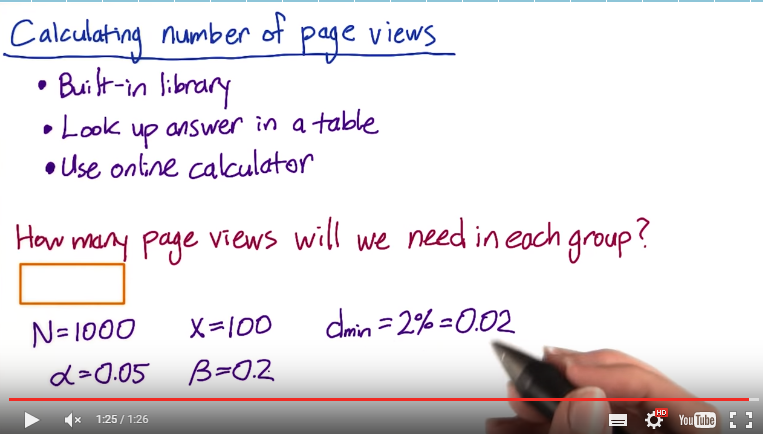 Calculating number of page views
• Built-in library
• Look up answer in a table
• Use online calculator
How many page views will we need in each group?
N=1000 X=100 dmin=2%=0.02
α=0.05 β=0.2
1:25 / 1:26 HD YouTube